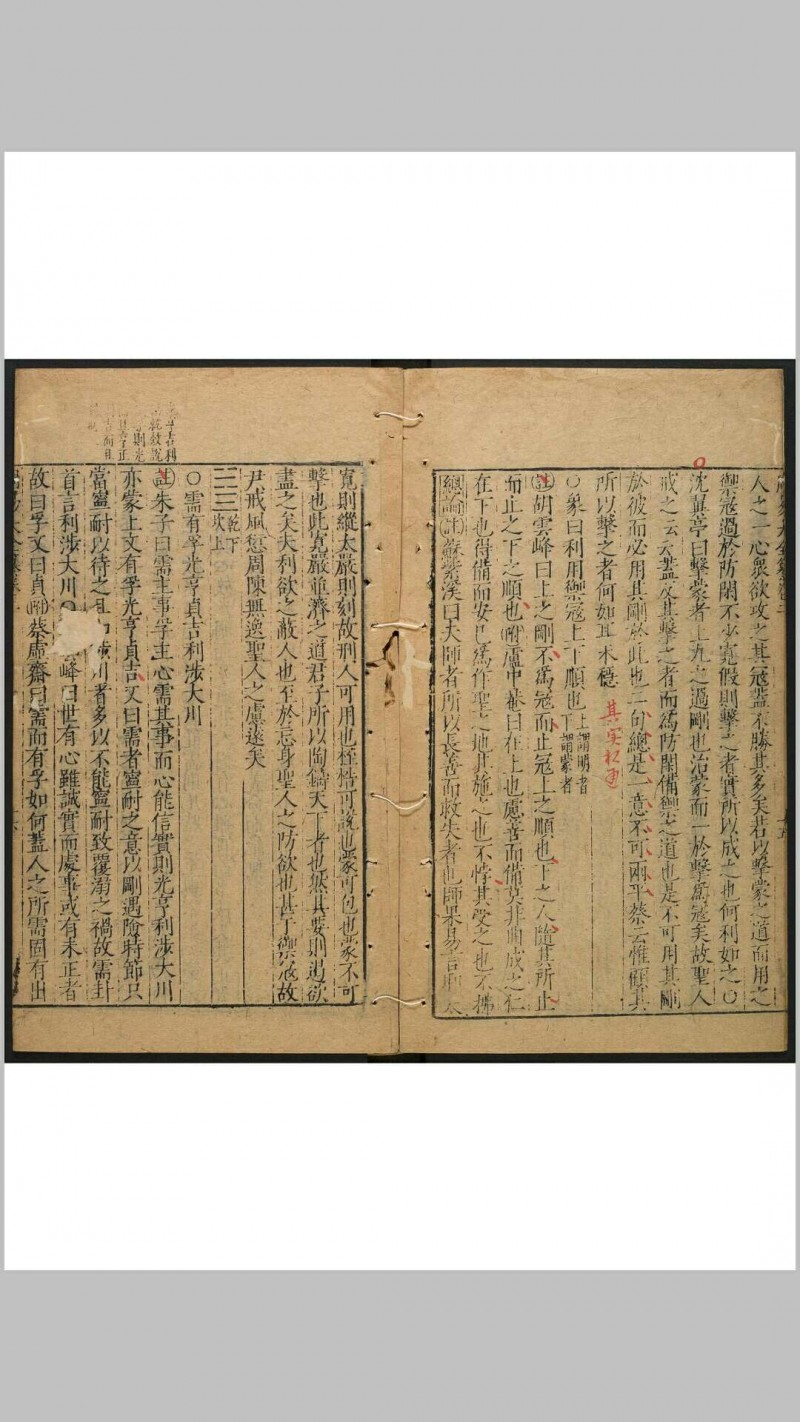 人之一心衆欲攻之其寇蓋不勝其多矣若以擊蒙之道而用之
禦寇過於防閑不少寬假則擊之者實所以成之也何利如之〇
沈翼亭曰擊蒙者上九之過剛也治蒙而一於擊爲寇矣故聖人
戒之云云蓋反其擊之者而爲防閑備禦之道也是不可用其剛
於彼而必用其剛於此也二句總是一意不可兩平蔡云惟顧其
所以擊之者何如耳未穩
其实松通
〇象曰利用禦寇上下順也上謂明者
下謂蒙者
註胡雲峰曰上之剛不爲寇而止寇上之順也下之人隨其所止
而止之下之順也附盧中菴曰在上也慮善而備莫非曲成之仁
在下也得備而安已爲作聖之地其施之也不悖其受之也不拂
總論註蘇紫溪曰夫師者所以長善而救失者也師果易言耶太
寬則縱太嚴則刻故刑人可用也桎梏可說也蒙可包也蒙不可
擊也此寬嚴並濟之道君子所以陶鑄天下者也然其要則遏欲
盡之矣夫利欲之蔽人也至於忘身聖人之防欲也甚于禦寇故
尹戒風愆周陳無逸聖人之慮遠矣
乾下
坎上
〇需有孚光亨貞吉利涉大川
註朱子曰需主事孚主心需其事而心能信實則光亨利涉大川
亦蒙上文有孚光亨貞吉又曰需者寧耐之意以剛遇險時節只
當寧耐以待之且如涉川者多以不能寧耐致覆溺之禍故需卦
首言利涉大川〇峰曰世有心雖誠實而處事或有未正者
故曰孚又曰貞附蔡虛齋曰需而有孚如何蓋人之所需固有出